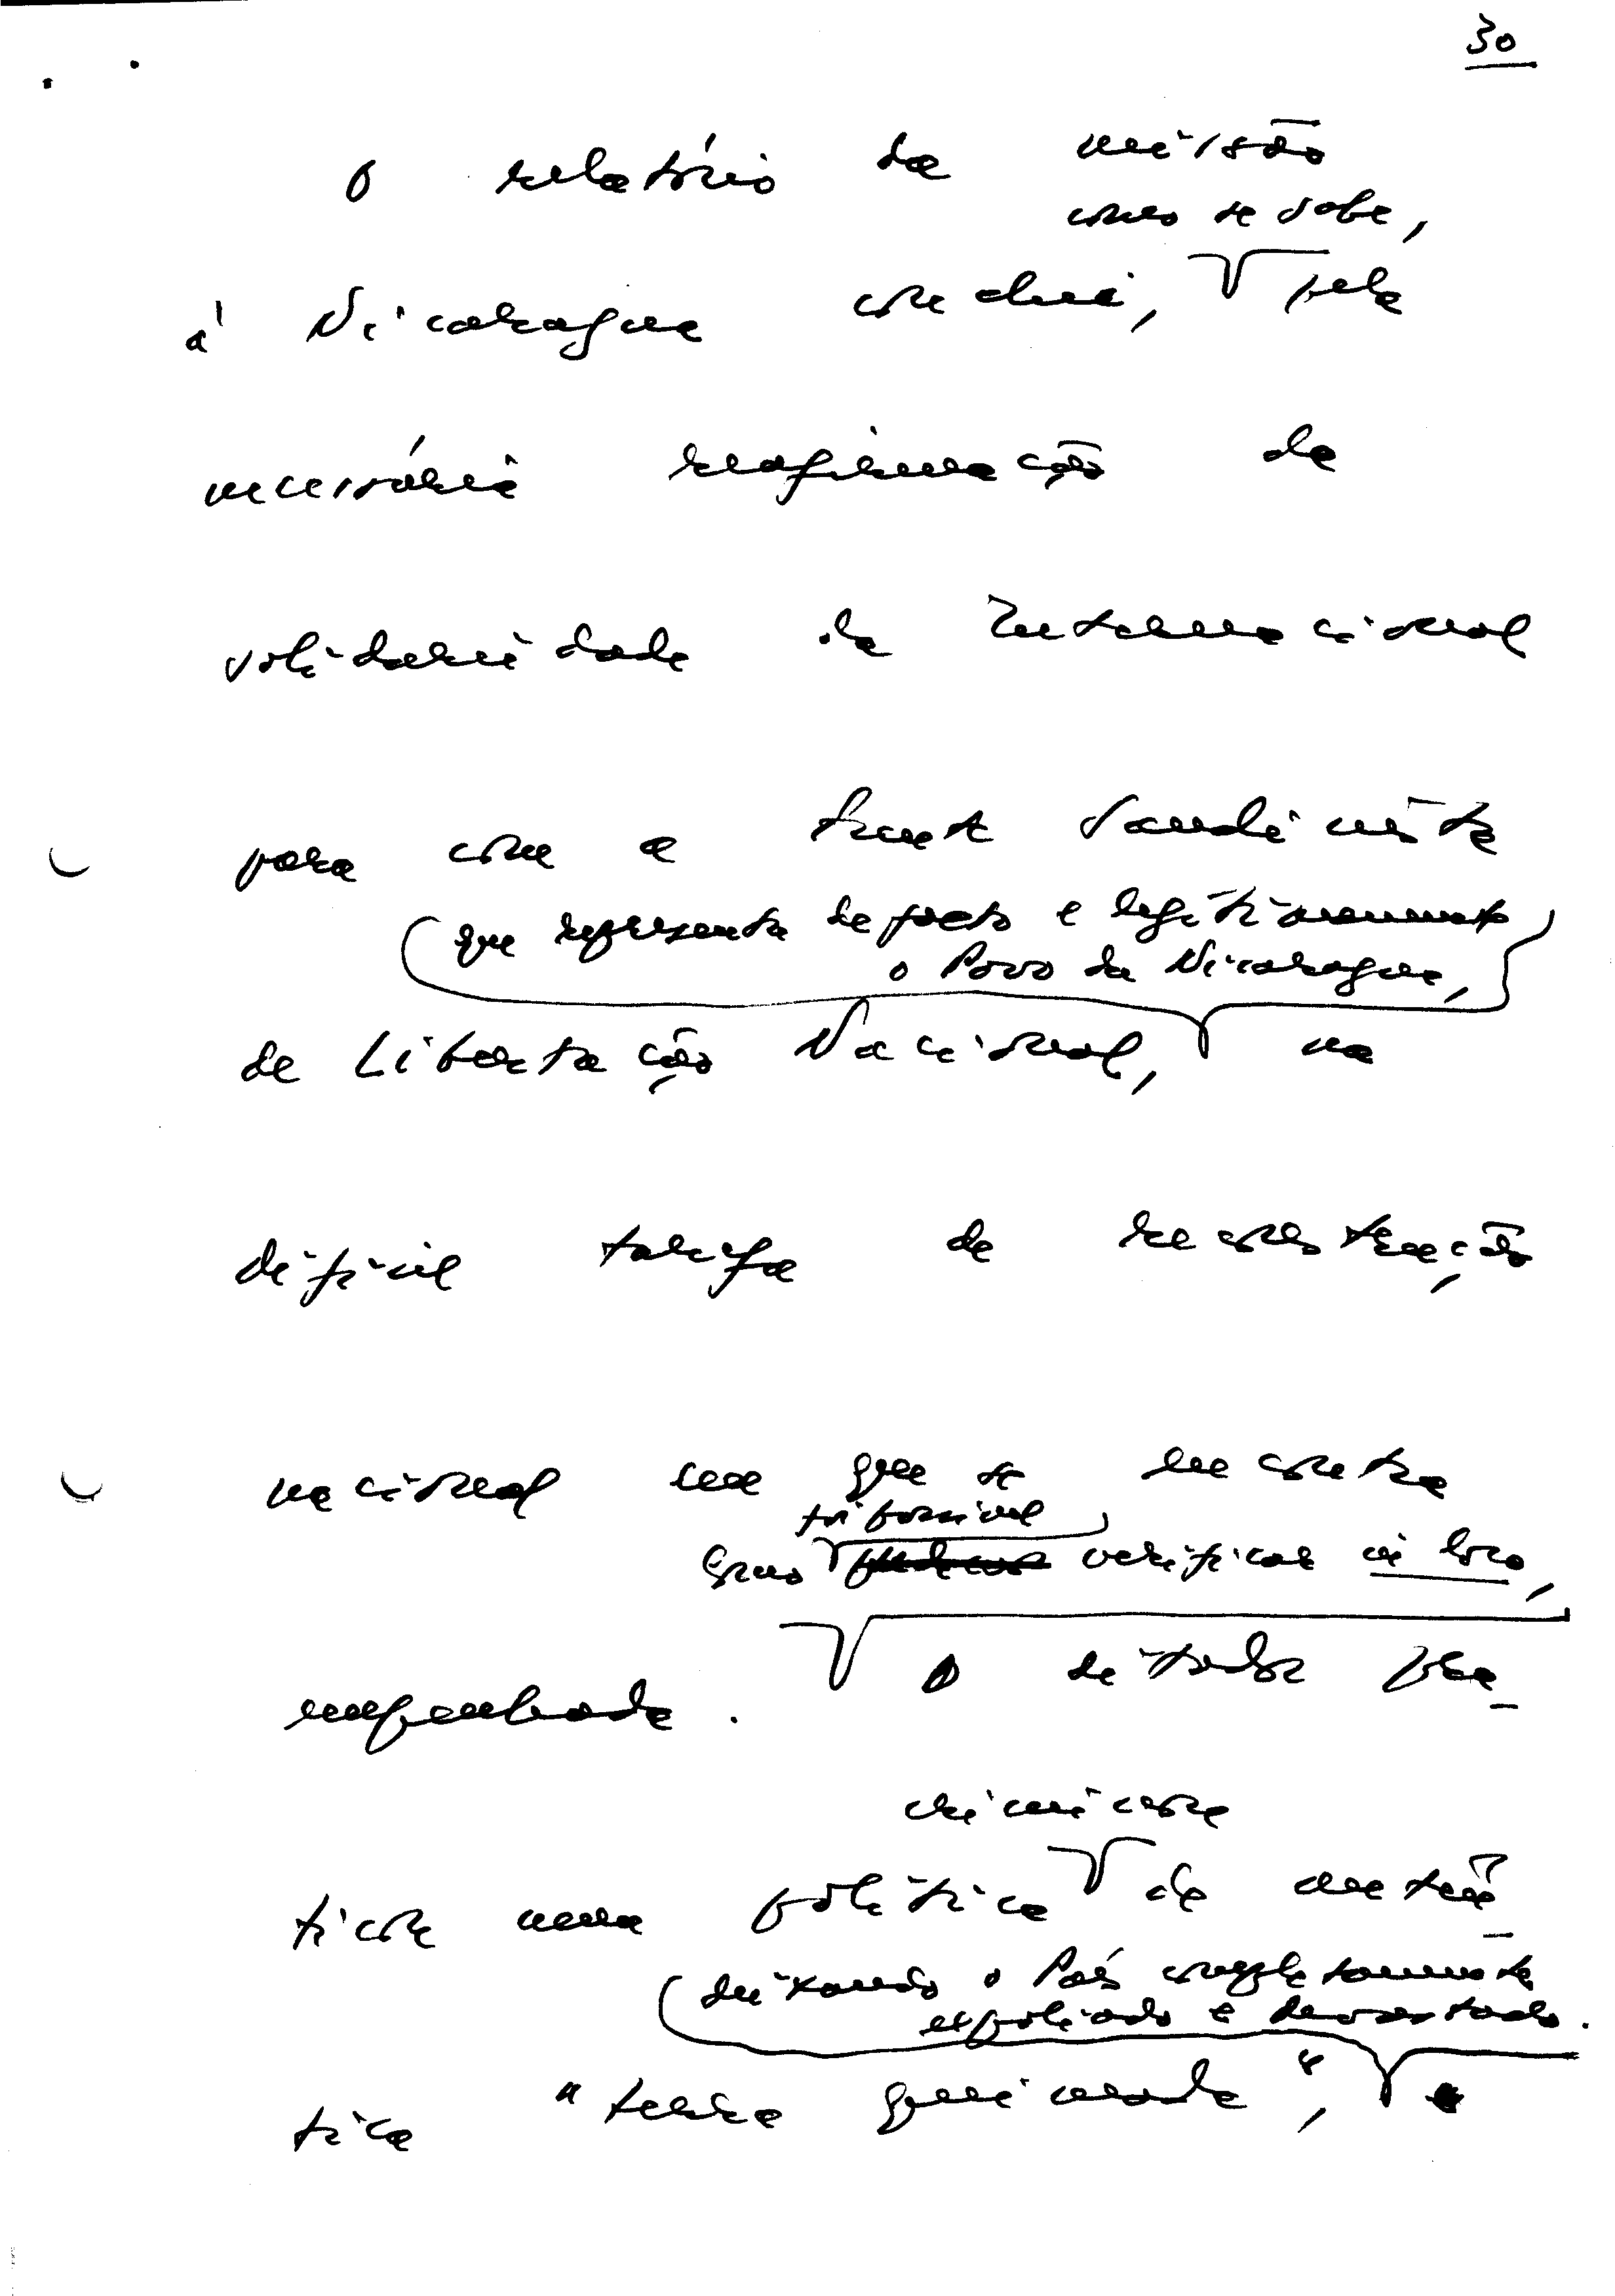 30
O relatório da missão
como se sabe,
à Nicarágua conclui, pela
necessária reafirmação da
solidariedade da Internacional
para com a Frente Sandinista
que representa de facto e legitimamente
o Povo da Nicarágua,
de Libertação Nacional, na
difícil tarefa de reconstrução
nacional em que se encontra
foi possível
como verificar in loco,
empenhada. O ditador pra-
criminosa
ticou uma política de autên-
deixando o País completamente
espoliado e devastado.
tica "terra queimada",